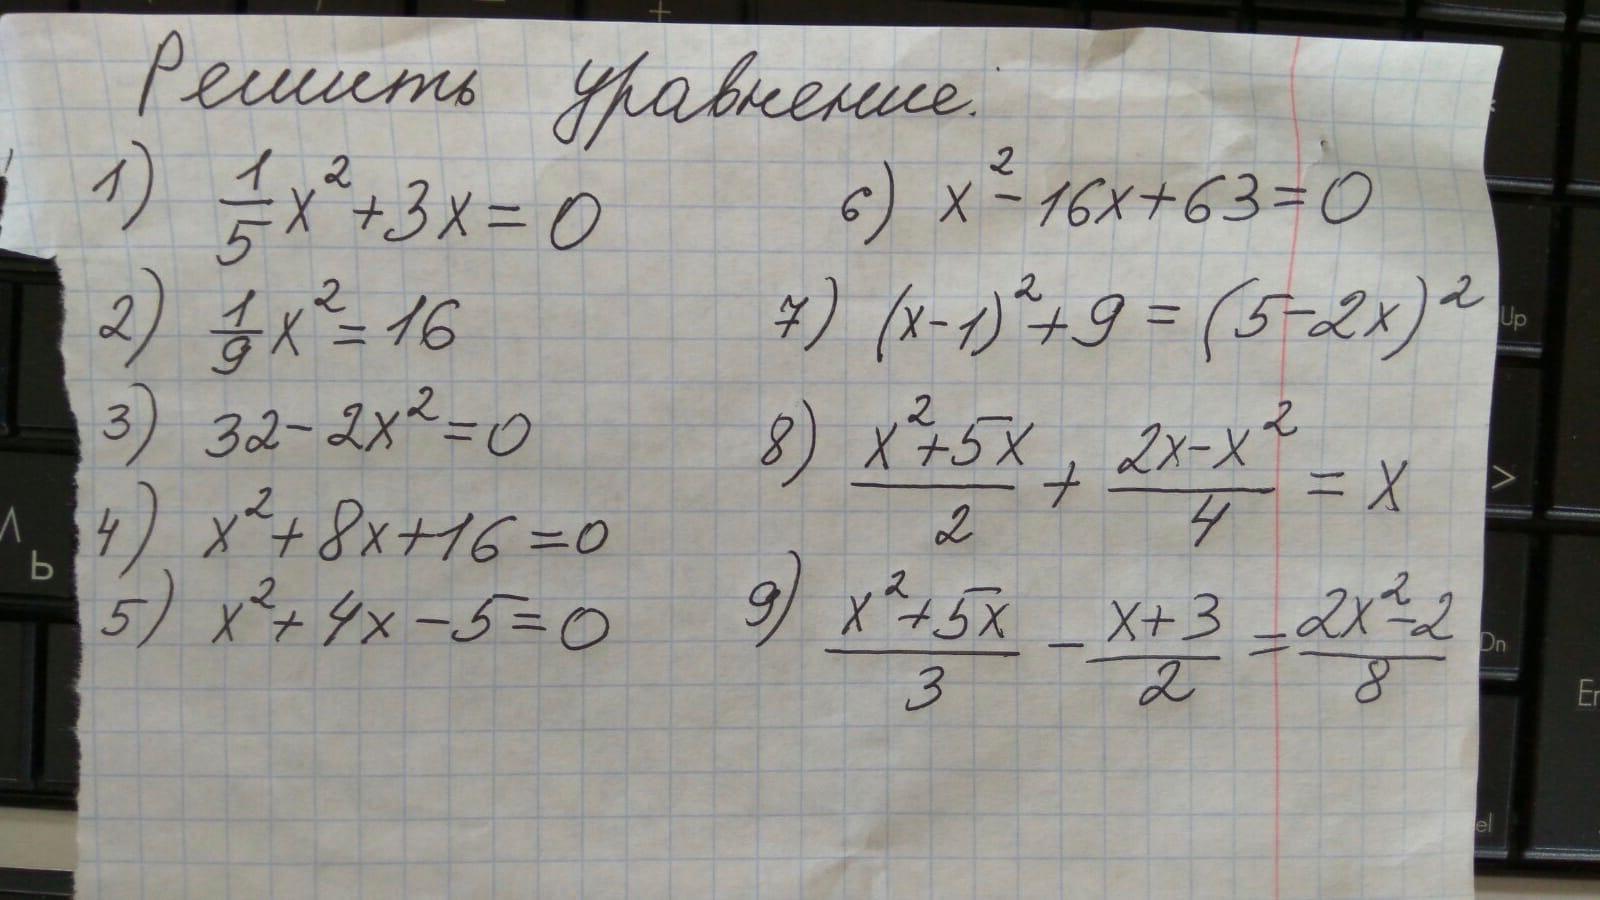 Решить уравнение.
1) 1/5 x² + 3x = 0
2) 1/9 x² = 16
3) 32 - 2x² = 0
4) x² + 8x + 16 = 0
5) x² + 4x - 5 = 0
6) x² - 16x + 63 = 0
7) (x - 1)² + 9 = (5 - 2x)²
8) (x² + 5x)/2 + (2x - x²)/4 = x
9) (x² + 5x)/3 - (x + 3)/2 = (2x² - 2)/8
Л
Ь
+
Up
>
Dn
En
el